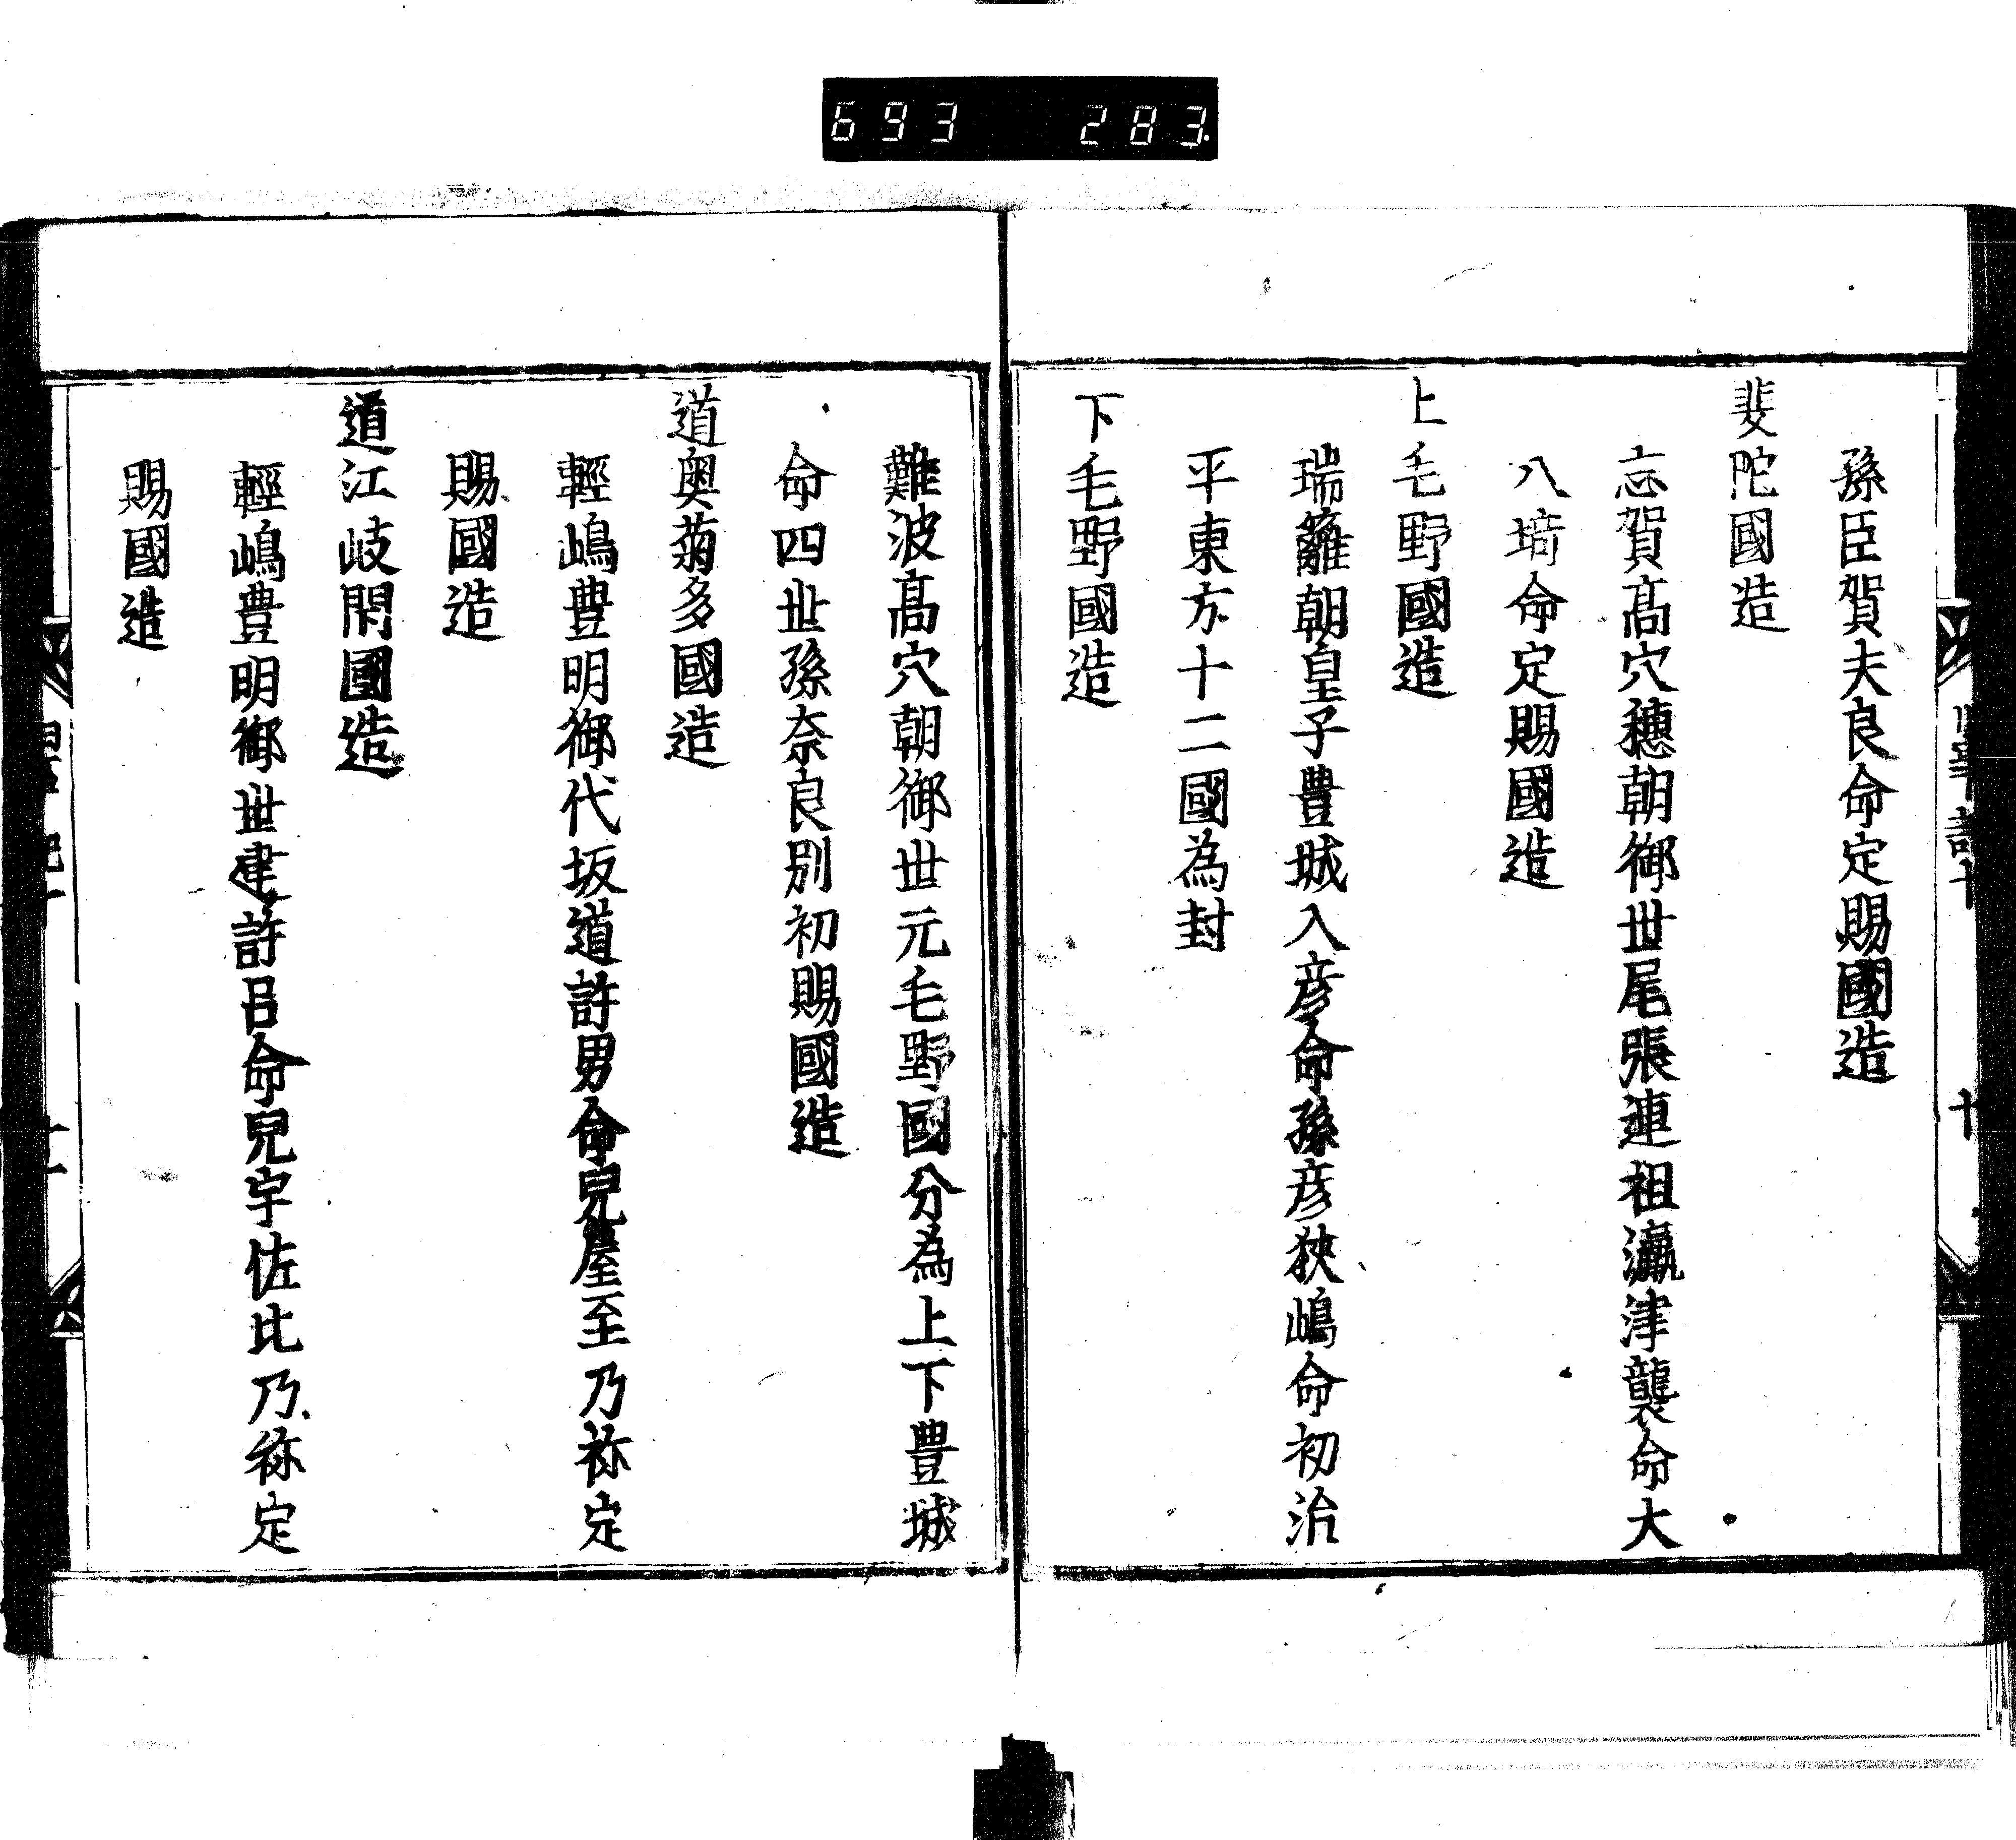 693 283.
孫臣賀夫良命定賜國造
斐陀國造
志賀髙穴穗朝御世尾張連祖瀛津襲命大
八埼命定賜國造
上毛野國造
瑞籬朝皇子豊城入彦命孫彦狹嶋命初治
平東方十二國為封
下毛野國造
難波髙穴朝御世元毛野國分為上下豊城
命四世孫奈良別初賜國造
道奥菊多國造
輕嶋豊明御代坂道許男命兒屋至乃祢定
賜國造
道江岐閇國造
輕嶋豊明御世建許呂命兒宇佐比乃祢定
賜國造